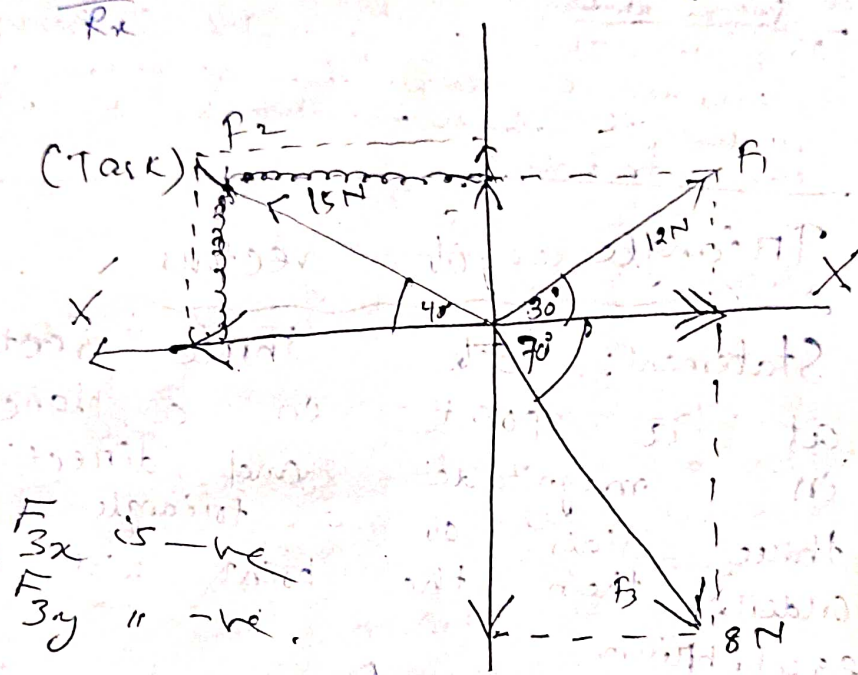 Rx
F2
(Task)
F1
15N
12N
X
X
30°
70°
F3x is -ve
F3y " -ve.
F3
8N